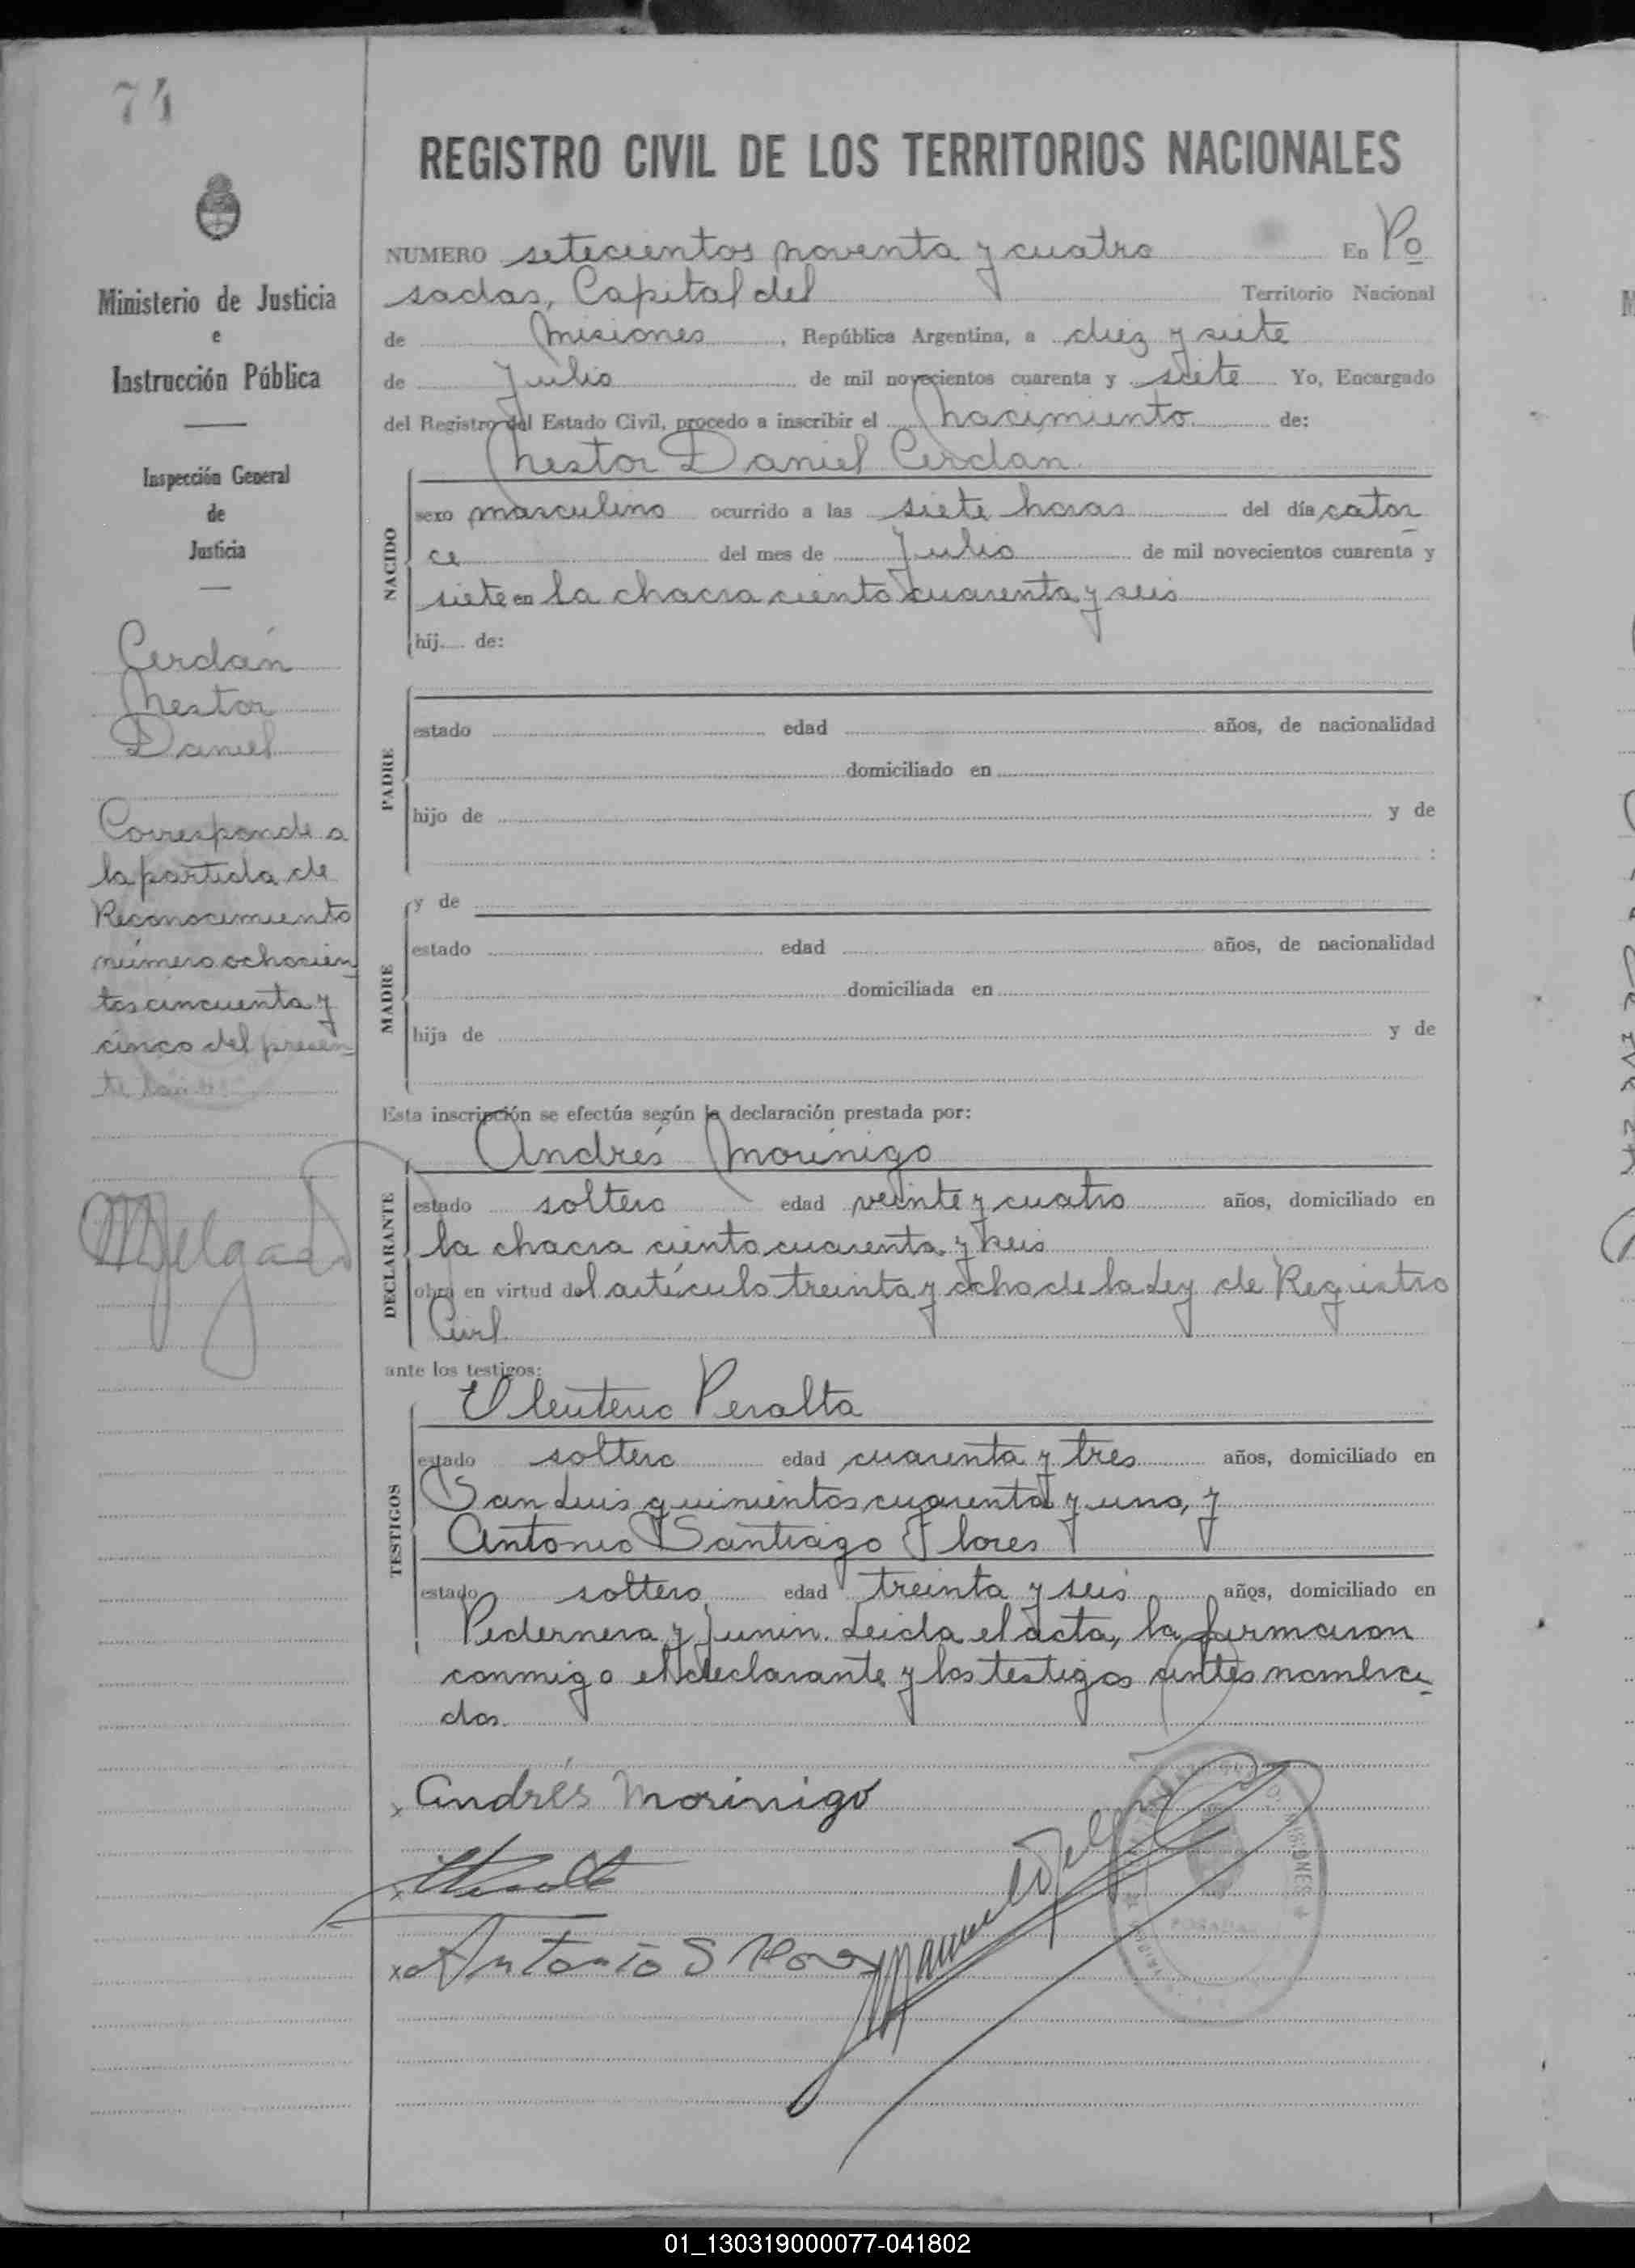 74
REGISTRO CIVIL DE LOS TERRITORIOS NACIONALES
Ministerio de Justicia
e
Instrucción Pública
Inspección General
de
Justicia
Cerdán
Nestor
Daniel
Corresponde a
la partida de
Reconocimiento
número ochocien
tos cincuenta y
cinco del presen
te
NUMERO setecientos noventa y cuatro En Po
sadas, Capital del Territorio Nacional
de Misiones, República Argentina, a diez y siete
de Julio de mil novecientos cuarenta y siete Yo, Encargado
del Registro del Estado Civil, procedo a inscribir el nacimiento de:
Nestor Daniel Cerdán
NACIDO
sexo masculino ocurrido a las siete horas del día cator
ce del mes de Julio de mil novecientos cuarenta y
siete en la chacra ciento cuarenta y seis
hij.... de:
PADRE
estado edad años, de nacionalidad
domiciliado en
hijo de y de
:
MADRE
y de
estado edad años, de nacionalidad
domiciliada en
hija de y de
Esta inscripción se efectúa según la declaración prestada por:
Andrés Morinigo
DECLARANTE
estado soltero edad veinte y cuatro años, domiciliado en
la chacra ciento cuarenta y seis
obra en virtud del artículo treinta y ocho de la Ley de Registro
Civil.
ante los testigos:
Eleuterio Peralta
TESTIGOS
estado soltero edad cuarenta y tres años, domiciliado en
San Luis quinientos cuarenta y uno, y
Antonio Santiago Flores
estado soltero, edad treinta y seis años, domiciliado en
Pedernera y Junin. Leida el acta, la firmaron
conmigo el declarante y los testigos antes nombra
dos.
x Andrés Morinigo
x
x Antonio S Flores
Manuel
MISIONES
POSADAS
01_130319000077-041802